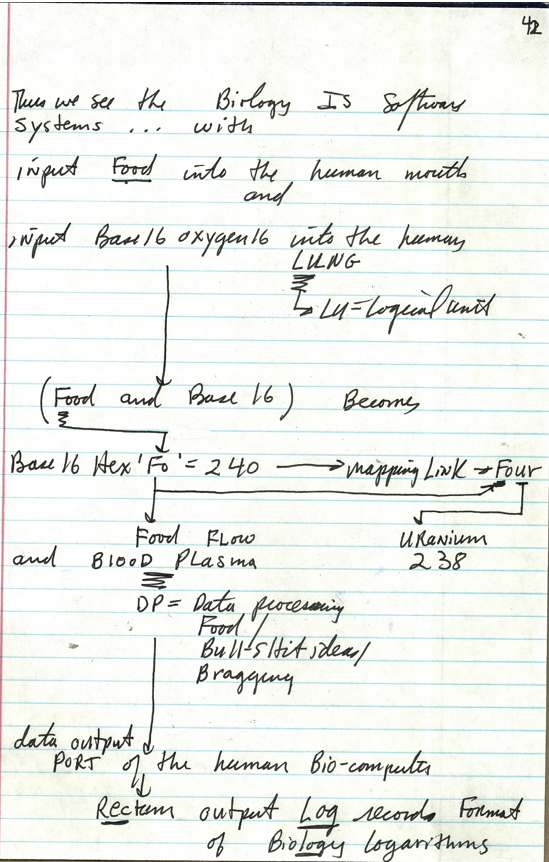 42
Thus we see the Biology IS Software
systems ... with
input Food into the human mouth
and
input Base 16 oxygen 16 into the human
LUNG
LU = Logical unit
(Food and Base 16) Becomes
Base 16 Hex 'Fo' = 240 → mapping Link → Four
Food FLOW
URanium
and BlooD PLasma
238
DP = Data processing
Food /
Bull-sHit ideas/
Bragging
data output
PORT of the human Bio-computer
RECtum output Log records Format
of BioLogy logarithms